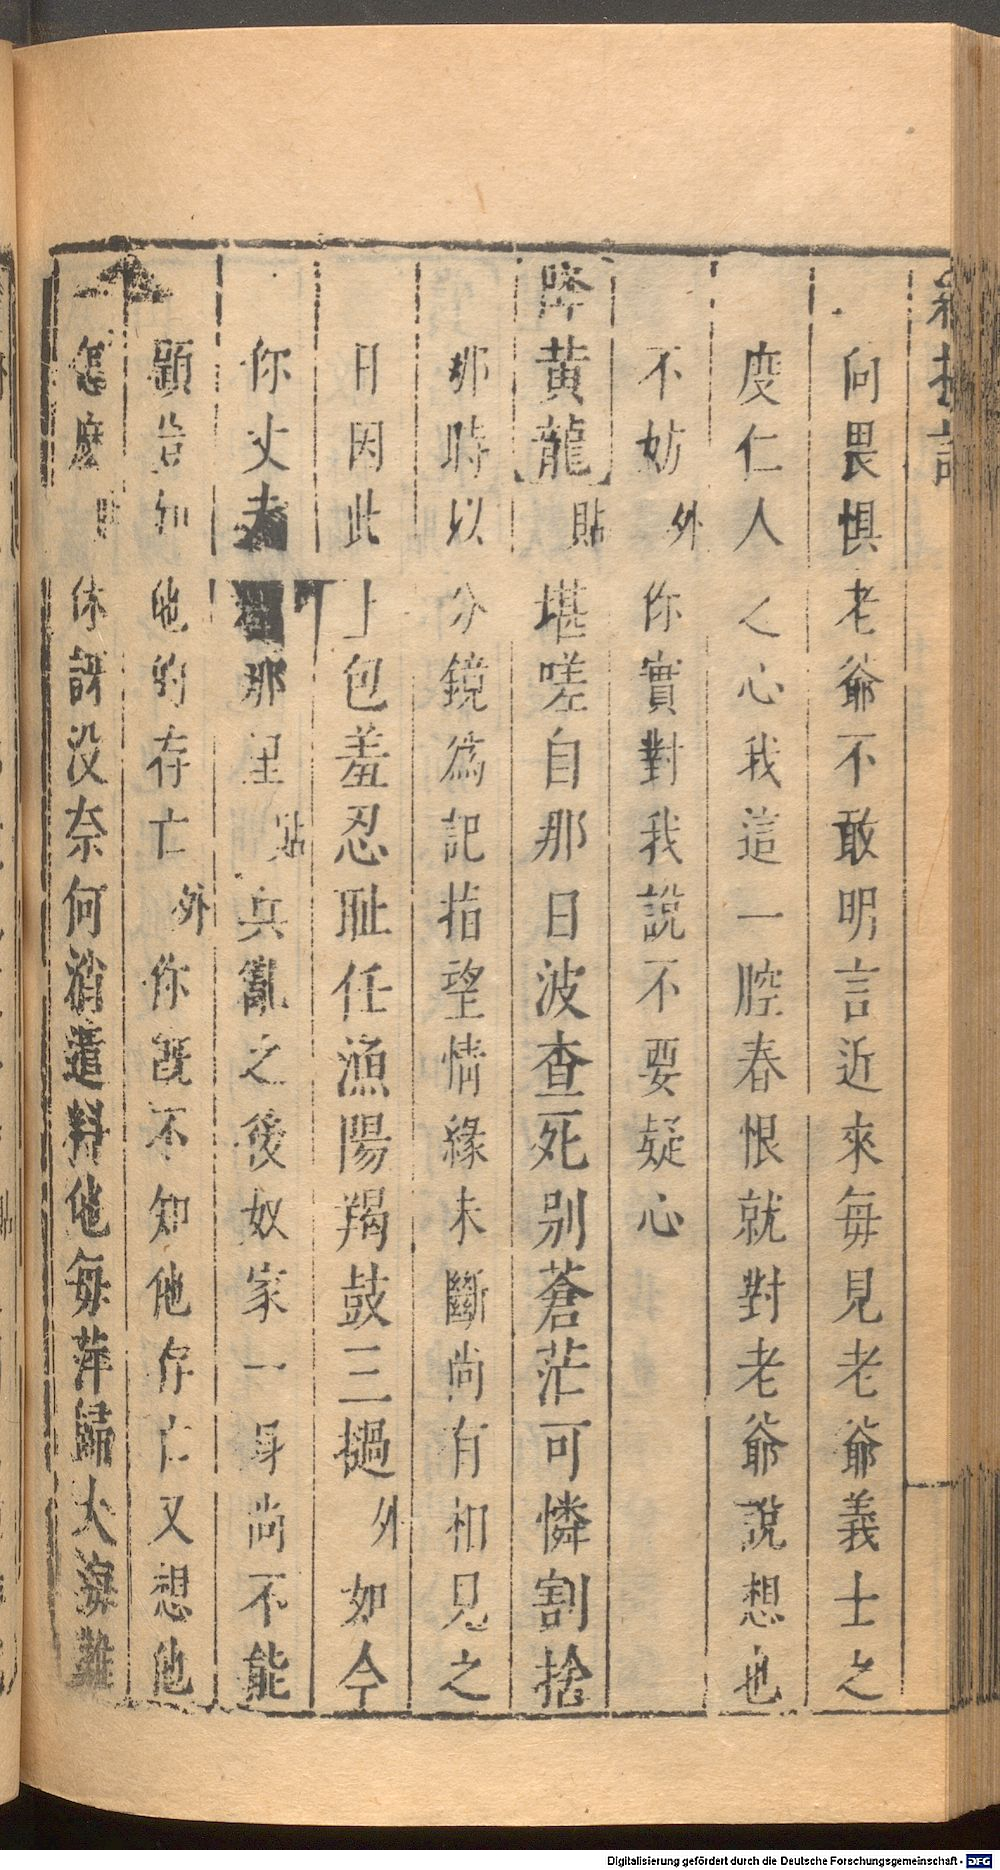 向畏惧老爺不敢明言近來每見老爺義士之
度仁人之心我這一腔春恨就對老爺說想也
不妨外你實對我說不要疑心
降黃龍貼堪嗟自那日波查死别蒼茫可憐割捨
那時以分鏡為記指望情緣未斷尚有相見之
日因此上包羞忍耻任漁陽羯鼓三撾外如今
你丈夫那里貼兵亂之後奴家一身尚不能
顧豈知他的存亡外你既不知他存亡又想他
怎麽貼休訝没奈何消遣料他每萍歸大海難
Digitalisierung gefördert durch die Deutsche Forschungsgemeinschaft - DFG